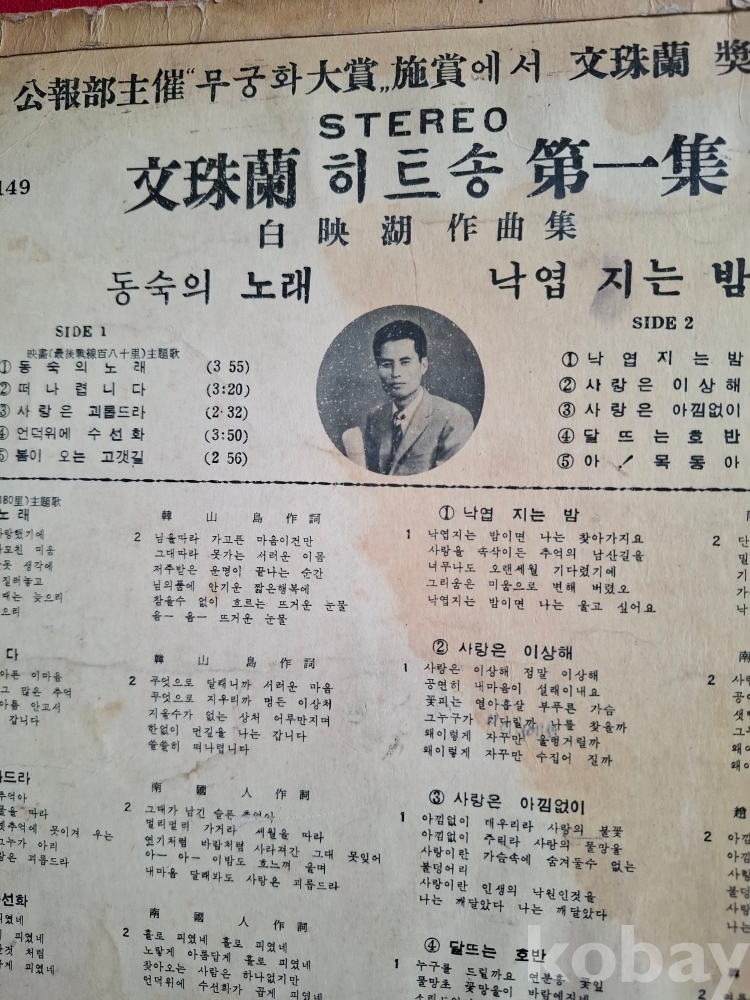 公報部主催 “무궁화大賞„ 施賞에서 文珠蘭 獎
STEREO
149
文珠蘭 히트송 第一集
白映湖 作曲集
동숙의 노래 낙엽 지는 밤
SIDE 1
映畵(最後戰線百八十里)主題歌
① 동숙의 노래 (3 55)
② 떠나렵니다 (3:20)
③ 사랑은 괴롭드라 (2·32)
④ 언덕위에 수선화 (3:50)
⑤ 봄이 오는 고갯길 (2 56)
SIDE 2
① 낙엽 지는 밤
② 사랑은 이상해
③ 사랑은 아낌없이
④ 달 뜨는 호반
⑤ 아! 목동아
180里)主題歌
노래
사랑했기에
사모친 미움
못 생각에
질러놓고
때는 늦으리
으리
韓山島 作詞
2 님을따라 가고픈 마음이건만
그대따라 못가는 서러운 이몸
저주받은 운명이 끝나는 순간
님의품에 안기운 짧은행복에
참을수 없이 흐르는 뜨거운 눈물
음- 음- 뜨거운 눈물
다
아픈 이마음
그 많은 추억
아픔 안고서
갑니다
韓山島 作詞
2 무엇으로 달래니까 서러운 마음
무엇으로 지우리까 멍든 이상처
지울수가 없는 상처 어루만지며
한없이 먼길을 나는 갑니다
쓸쓸히 떠나렵니다
드라
추억아
을 따라
추억에 못이겨 우는
그누가 아리
랑은 괴롭드라
南國人 作詞
2 그대가 남긴 슬픈 추억아
멀리멀리 가거라 세월을 따라
연기처럼 바람처럼 사라져간 그대 못잊어
아- 아- 이밤도 흐느껴 울며
내마음 달래봐도 사랑은 괴롭드라
수선화
피였네
피였네
것 처럼
하게 피였네
南國人 作詞
2 홀로 피였네 홀로 피였네
노랗게 아롱답게 홀로 피였네
찾아오는 사람은 하나없지만
언덕위에 수선화가 곱게 피였네
① 낙엽 지는 밤
1 낙엽지는 밤이면 나는 찾아가지요
사랑을 속삭이든 추억의 남산길을
너무나도 오랜세월 기다렸기에
그리움은 미움으로 변해 버렸오
낙엽지는 밤이면 나는 울고 싶어요
② 사랑은 이상해
1 사랑은 이상해 정말 이상해
공연히 내마음이 설래이내요
꽃피는 열아홉살 부푸른 가슴
그누구가 기다릴까 나를 찾을까
왜이렇게 자꾸만 울렁거릴까
왜이렇게 자꾸만 수집어 질까
③ 사랑은 아낌없이
1 아낌없이 태우리라 사랑의 불꽃
아낌없이 주리라 사랑의 꽃망울
사랑이란 가슴속에 숨겨둘수 없는
불덩어리
사랑이란 인생의 낙원인것을
나는 깨달았다 나는 깨달았다
④ 달뜨는 호반
1 누구를 드릴까요 연분홍 꽃잎
물망초 꽃망울이 바람에지네
2 단
밀
기
가
낙
南
2 사랑
공연
그누
왜이
왜이
2 아낌
아낌
사랑
불덩
사랑
나는
韓
2
kobay